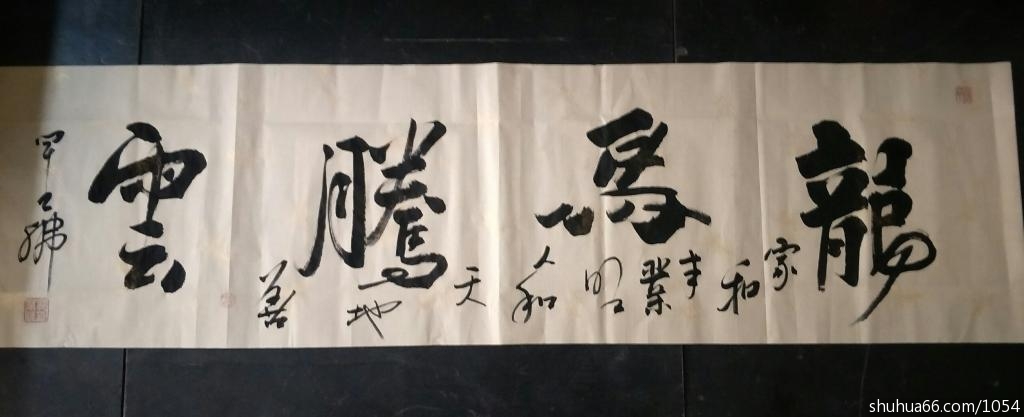 龍騰雲
家和事業明人和天地善
shuhua66.com/1054